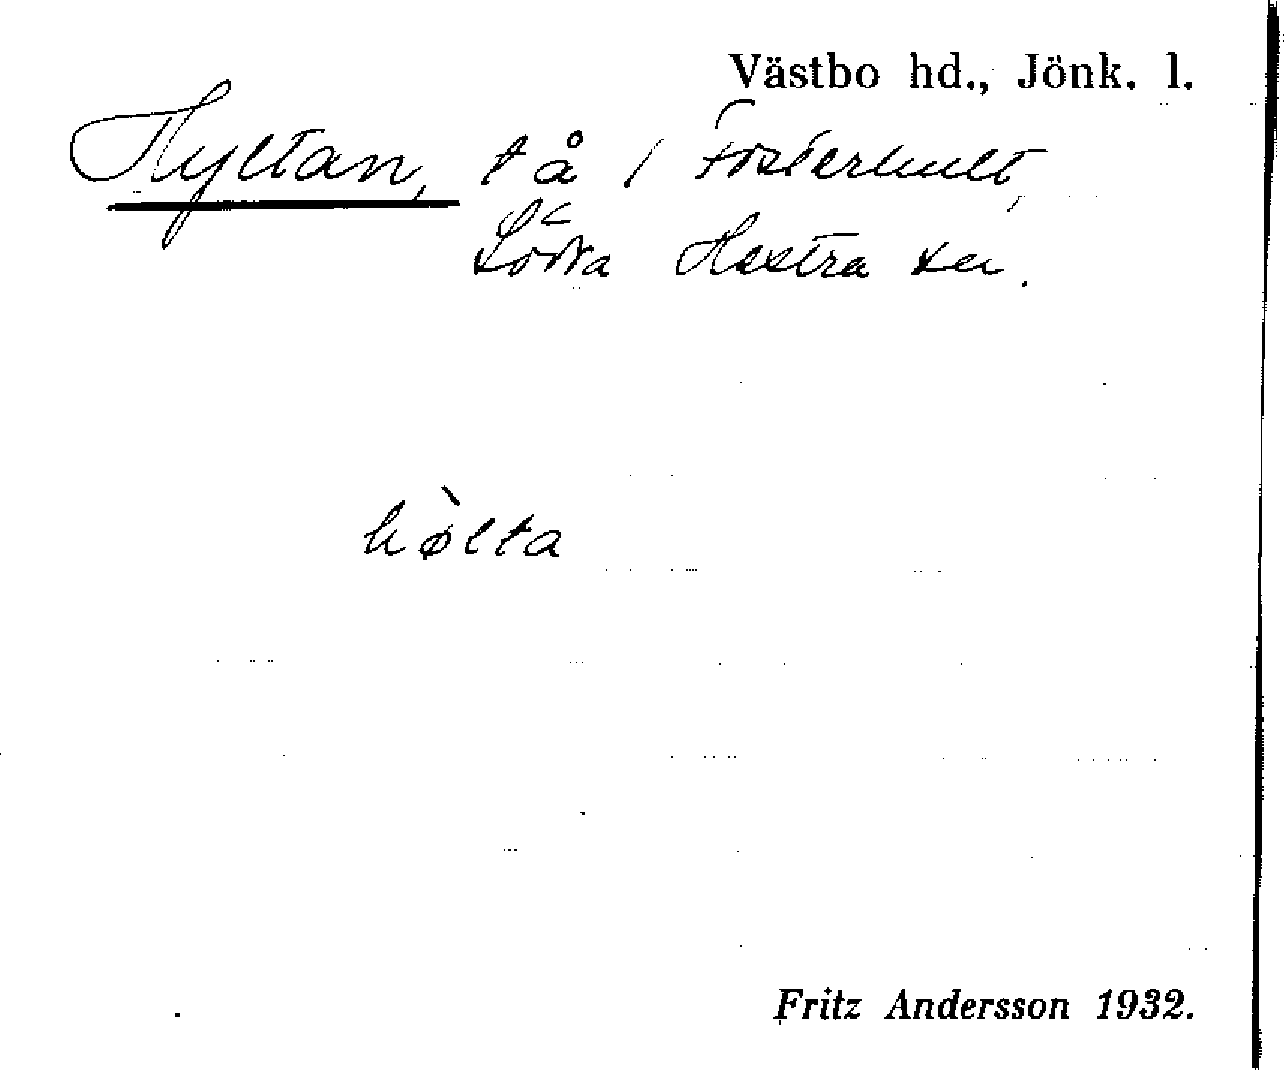 Västbo hd., Jönk. l.
Hyltan, tå i Fösterhult,
Södra Hestra sn.
hø̀lta
Fritz Andersson 1932.